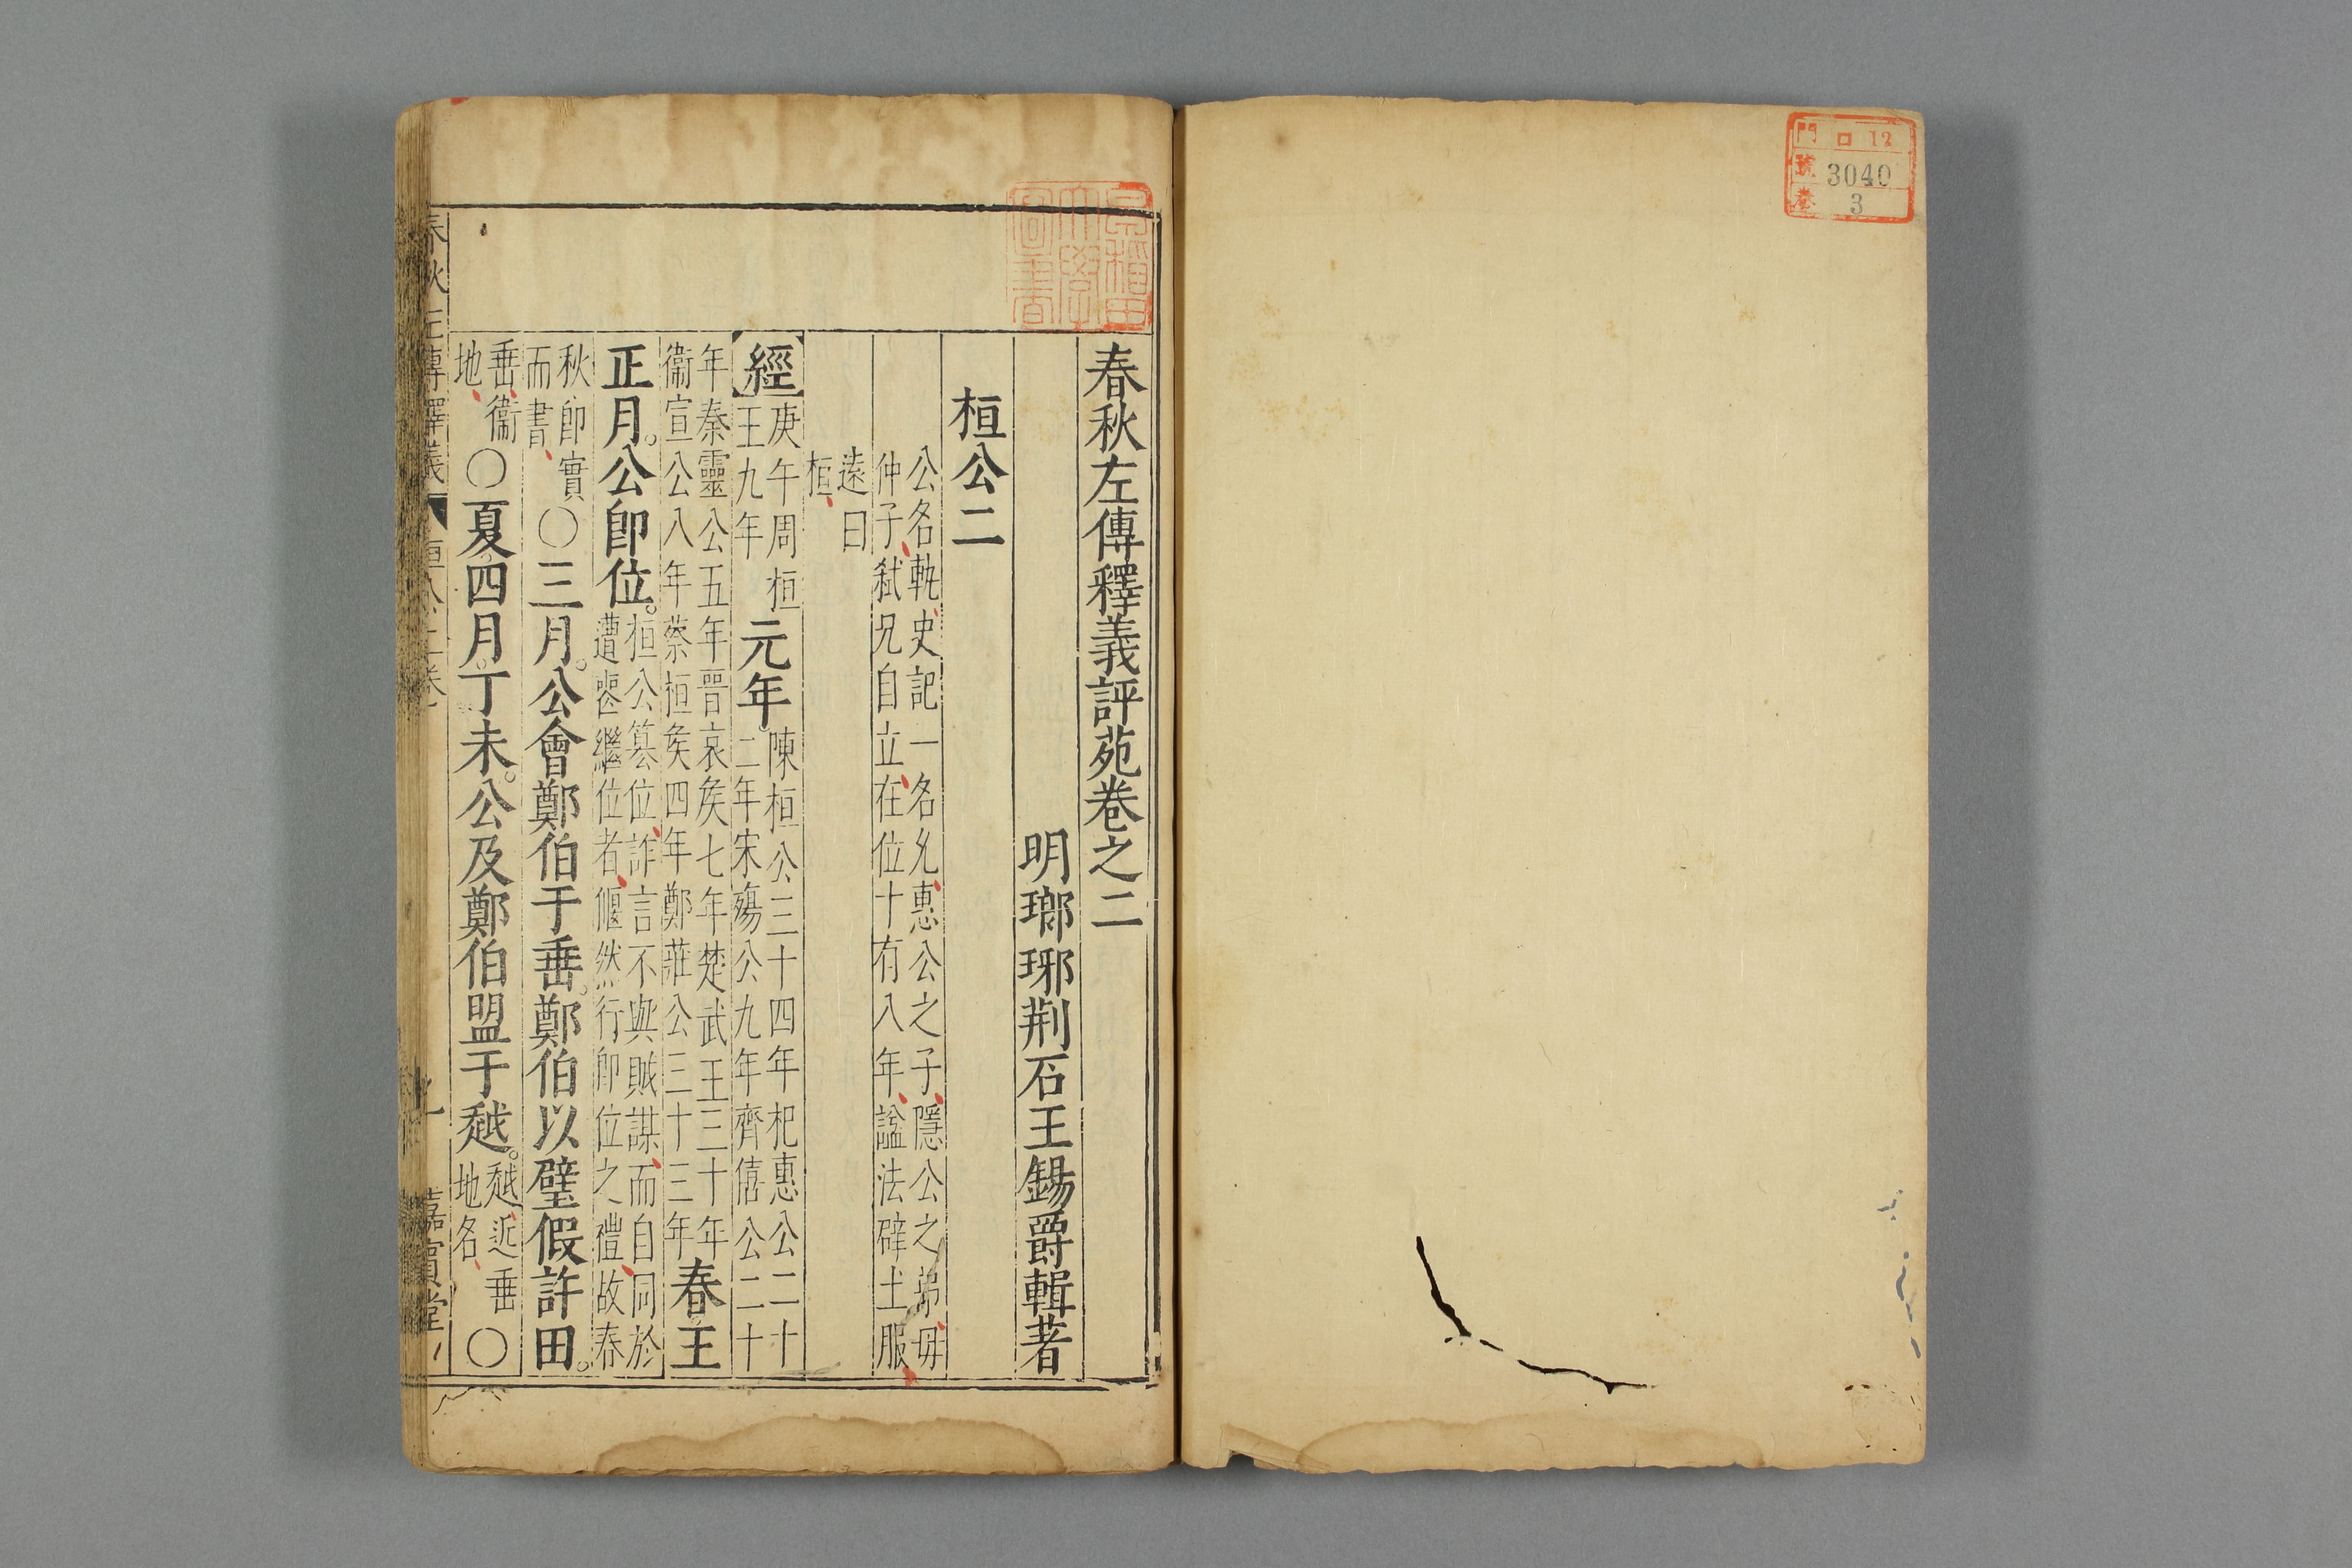 門 ロ 12
號 3040
卷 3
早稻田大學圖書
春秋左傳釋義評苑卷之二
明瑯琊荆石王錫爵輯著
桓公二
公名軌史記一名允惠公之子隱公之弟毋
仲子弑兄自立在位十有八年諡法辟土服
遠曰
桓
經庚午周桓
王九年元年陳桓公三十四年杞惠公二十
二年宋殤公九年齊僖公二十
年秦靈公五年晉哀矦七年楚武王三十年
衞宣公八年蔡桓矦四年鄭莊公三十三年春王
正月公卽位桓公簒位詐言不與賊謀而自同於
遭喪繼位者偃然行卽位之禮故春
秋卽實
而書〇三月公會鄭伯于垂鄭伯以璧假許田
垂衞
地〇夏四月丁未公及鄭伯盟于越越近垂
地名〇
春秋左傳釋義 桓公二卷 嘉賓堂